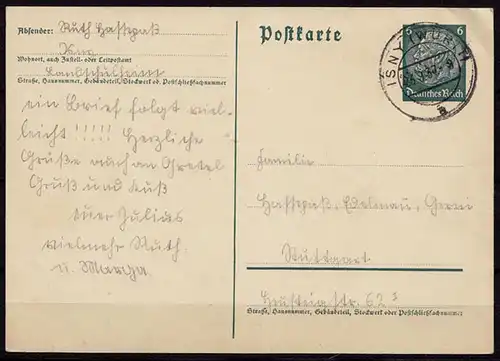 Absender: Ruth Hassepaß
Isny
Wohnort, auch Zustell- oder Leitpostamt
Landschulheim
Straße, Hausnummer, Gebäudeteil, Stockwerk od. Postschließfachnummer
ein Brief folgt viel-
leicht !!!!! Herzliche
Grüße auch an Gretel
Gruß und Kuß
euer Julius
vielmehr Ruth
u. Marga
Postkarte
6 6
Deutsches Reich
ISNY (WÜRTT)
a
Familie
Hassepaß,
Stuttgart
Heusteigstr. 62
Straße, Hausnummer, Gebäudeteil, Stockwerk oder Postschließfachnummer